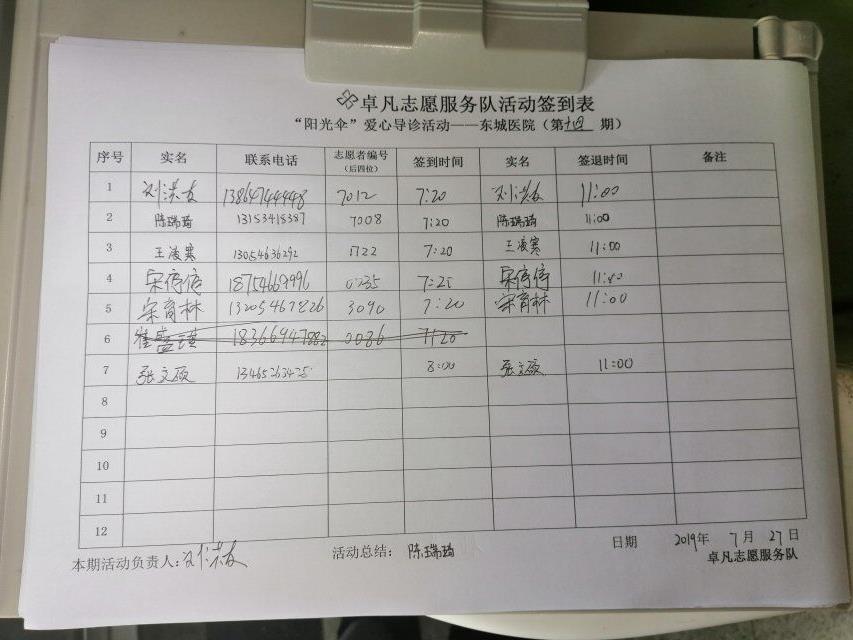 卓凡志愿服务队活动签到表
“阳光伞”爱心导诊活动——东城医院（第十四 期）
序号 实名 联系电话 志愿者编号（后四位） 签到时间 实名 签退时间 备注
1 刘洪友 13864744448 7012 7:20 刘洪友 11:00
2 陈瑞琦 13153418387 7008 7:20 陈瑞琦 11:00
3 王凌寒 13054636292 1722 7:20 王凌寒 11:00
4 宋倩倩 18754669996 0235 7:25 宋倩倩
5 宋育林 13205467826 3090 7:20 宋育林 11:00
6 崔盛 18366947882 0086 7:20
7 张文硕 8:00 张文硕 11:00
8
9
10
11
12
本期活动负责人：刘洪友 活动总结： 陈瑞琦 日期 2019年 7月 27日
卓凡志愿服务队